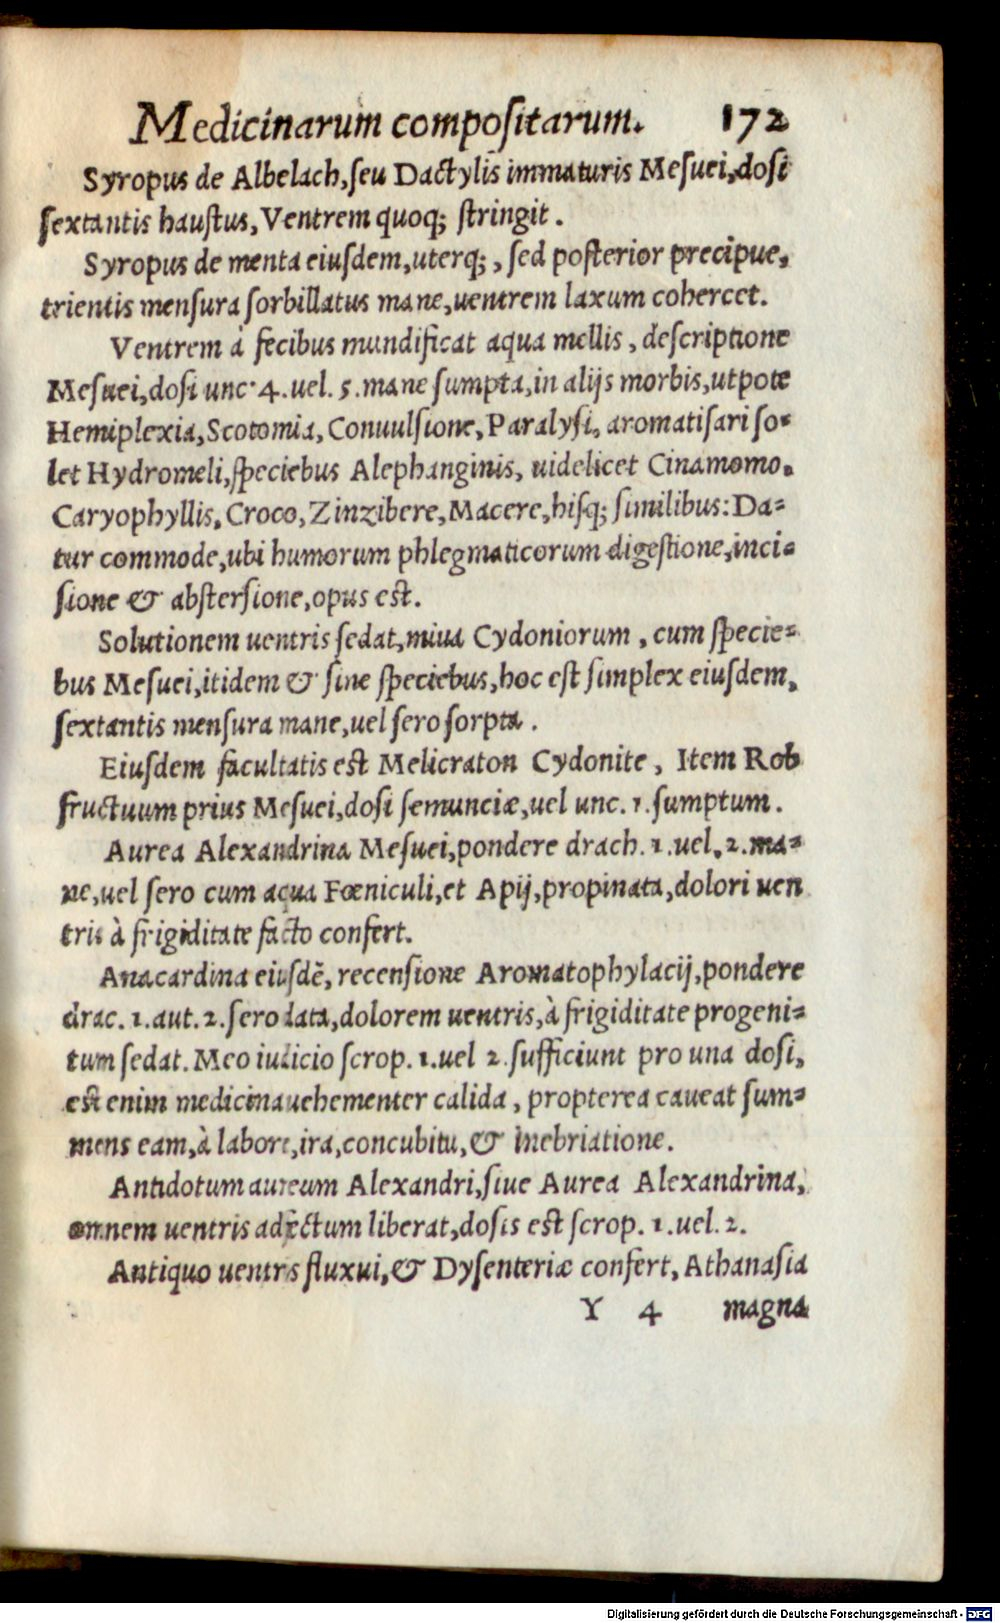 Medicinarum compoſitarum. 172
Syropus de Albelach, ſeu Dactylis immaturis Meſuei, doſi
ſextantis hauſtus, Ventrem quoq; ſtringit.
Syropus de menta eiuſdem, uterq;, ſed poſterior precipue,
trientis menſura ſorbillatus mane, uentrem laxum cohercet.
Ventrem à fecibus mundificat aqua mellis, deſcriptione
Meſuei, doſi unc. 4. uel. 5. mane ſumpta, in alijs morbis, utpote
Hemiplexia, Scotomia, Conuulſione, Paralyſi, aromatiſari ſo-
let Hydromeli, ſpeciebus Alephanginis, uidelicet Cinamomo.
Caryophyllis, Croco, Zinzibere, Macere, hiſq; ſimilibus: Da-
tur commode, ubi humorum phlegmaticorum digeſtione, inci-
ſione & abſterſione, opus eſt.
Solutionem uentris ſedat, miua Cydoniorum, cum ſpecie-
bus Meſuei, itidem & ſine ſpeciebus, hoc eſt ſimplex eiuſdem,
ſextantis menſura mane, uel ſero ſorpta.
Eiuſdem facultatis eſt Melicraton Cydonite, Item Rob
fructuum prius Meſuei, doſi ſemunciæ, uel unc. 1. ſumptum.
Aurea Alexandrina Meſuei, pondere drach. 1. uel. 2. ma-
ne, uel ſero cum aqua Fœniculi, et Apij, propinata, dolori uen
tris à frigiditate facto confert.
Anacardina eiuſdẽ, recenſione Aromatophylacij, pondere
drac. 1. aut. 2. ſero data, dolorem uentris, à frigiditate progeni-
tum ſedat. Meo iudicio ſcrop. 1. uel 2. ſufficiunt pro una doſi,
eſt enim medicina uehementer calida, propterea caueat ſum-
mens eam, à labore, ira, concubitu, & inebriatione.
Antidotum aureum Alexandri, ſiue Aurea Alexandrina,
omnem uentris adfectum liberat, doſis eſt ſcrop. 1. uel. 2.
Antiquo uentris fluxui, & Dyſenteriæ confert, Athanaſia
Y 4 magna
Digitalisierung gefördert durch die Deutsche Forschungsgemeinschaft - DFG